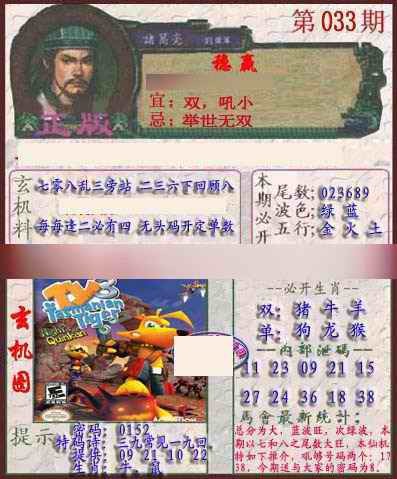 第033期
諸葛亮
稳赢
宜：双，吼小
忌：举世无双
正版
玄机料
七零八乱三旁站 二三六下回顾八
每每逢二必有四 无头码开定单数
本期必开
尾数:023689
波色:绿 蓝
五行:金 火 土
玄机图
TY3
the Tasmanian Tiger
Night of the Quinkan
--必开生肖--
双:猪 牛 羊
单:狗 龙 猴
--内部泄码--
11 23 09 21 15
27 24 36 18 38
馬會最新統计:
总分为大，蓝波旺，次绿波，本
期以七和八之尾数大旺，本仙机
特如下推介，吼够号码两个: 17
38，今期送与大家的密码为8.
提示
密码: 0152
特码诗: 三九常见一九回
提供: 09 21 10 22
生肖: 牛、鼠